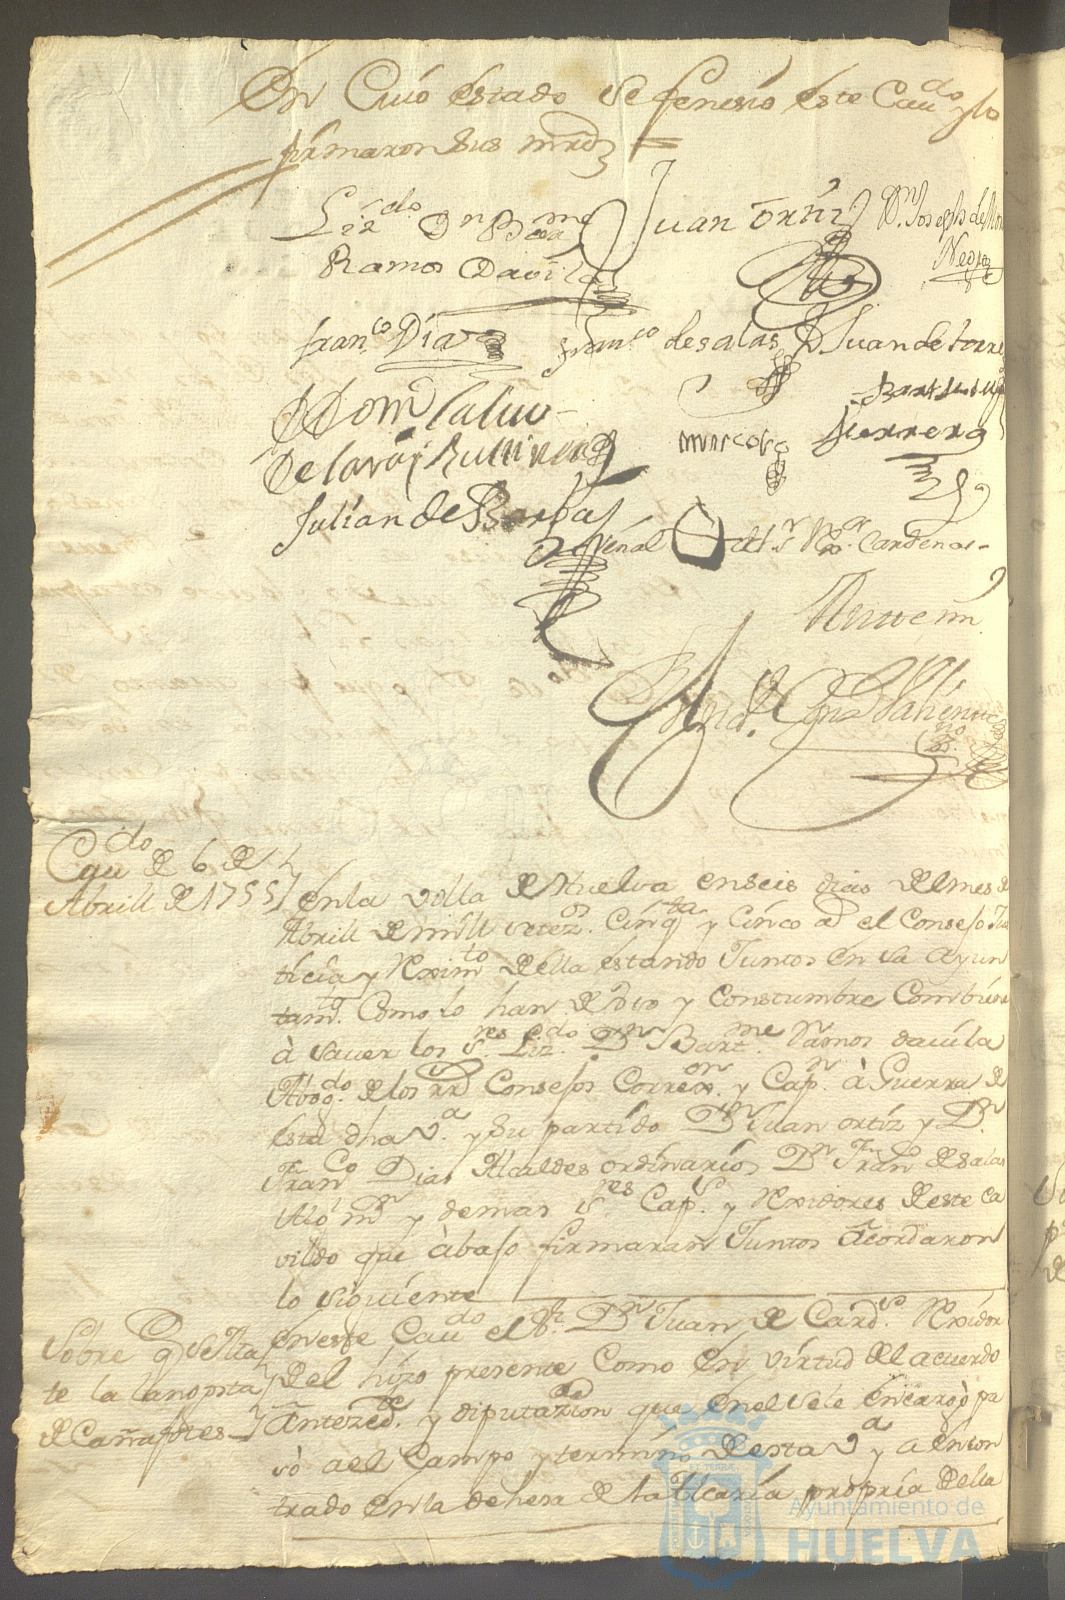 En Cuio estado se fenesio este Cau.do y lo
firmaron sus mrds =
Liz.do Dn Bme
Ramos Davila
Juan Ortiz
Dn Joseph de
Negro
Fran.co Diaz
Fran.co de salas
D Juan de torre
Bart
Herrera
de la
Julian de Borja
Cardenas
Cau.do de 6 de
Abrill de 1755
en la villa de Huelva en seis dias del mes de
Abrill de mill setez.os Cinq.ta y Cinco a.s el Consejo Jus
ticia y Reximto della estando Juntos en su Ayun
tam.to Como lo han de vso y Constumbre Combiene
à saver los S.res Liz.do Dn Bart.me Ramos davila
Abog.do de los rr.s Consejos Corre.or y Cap.n à Guerra de
esta dha V.a y su partido Dn Juan ortiz y D.n
Fran.co Dias Alcaldes ordinarios Dn Fran.co de Salas
Alg.l m.r y demas S.res Cap.s y Rexidores de este ca
vildo que àbajo firmaran Juntos Acordaron
lo siguiente
Sobre q
te la langosta
de Cañafotes
en este Cau.do el S.r Dn Juan de Card.s Rexidor
del hizo presente Como en virtud del acuerdo
Anteced.te y diputazion que en el se le encargò pa
sò a el Campo y termino de esta V.a y a encon
trado en la dehesa de la Alcaria propria della
Ayuntamiento de
HUELVA